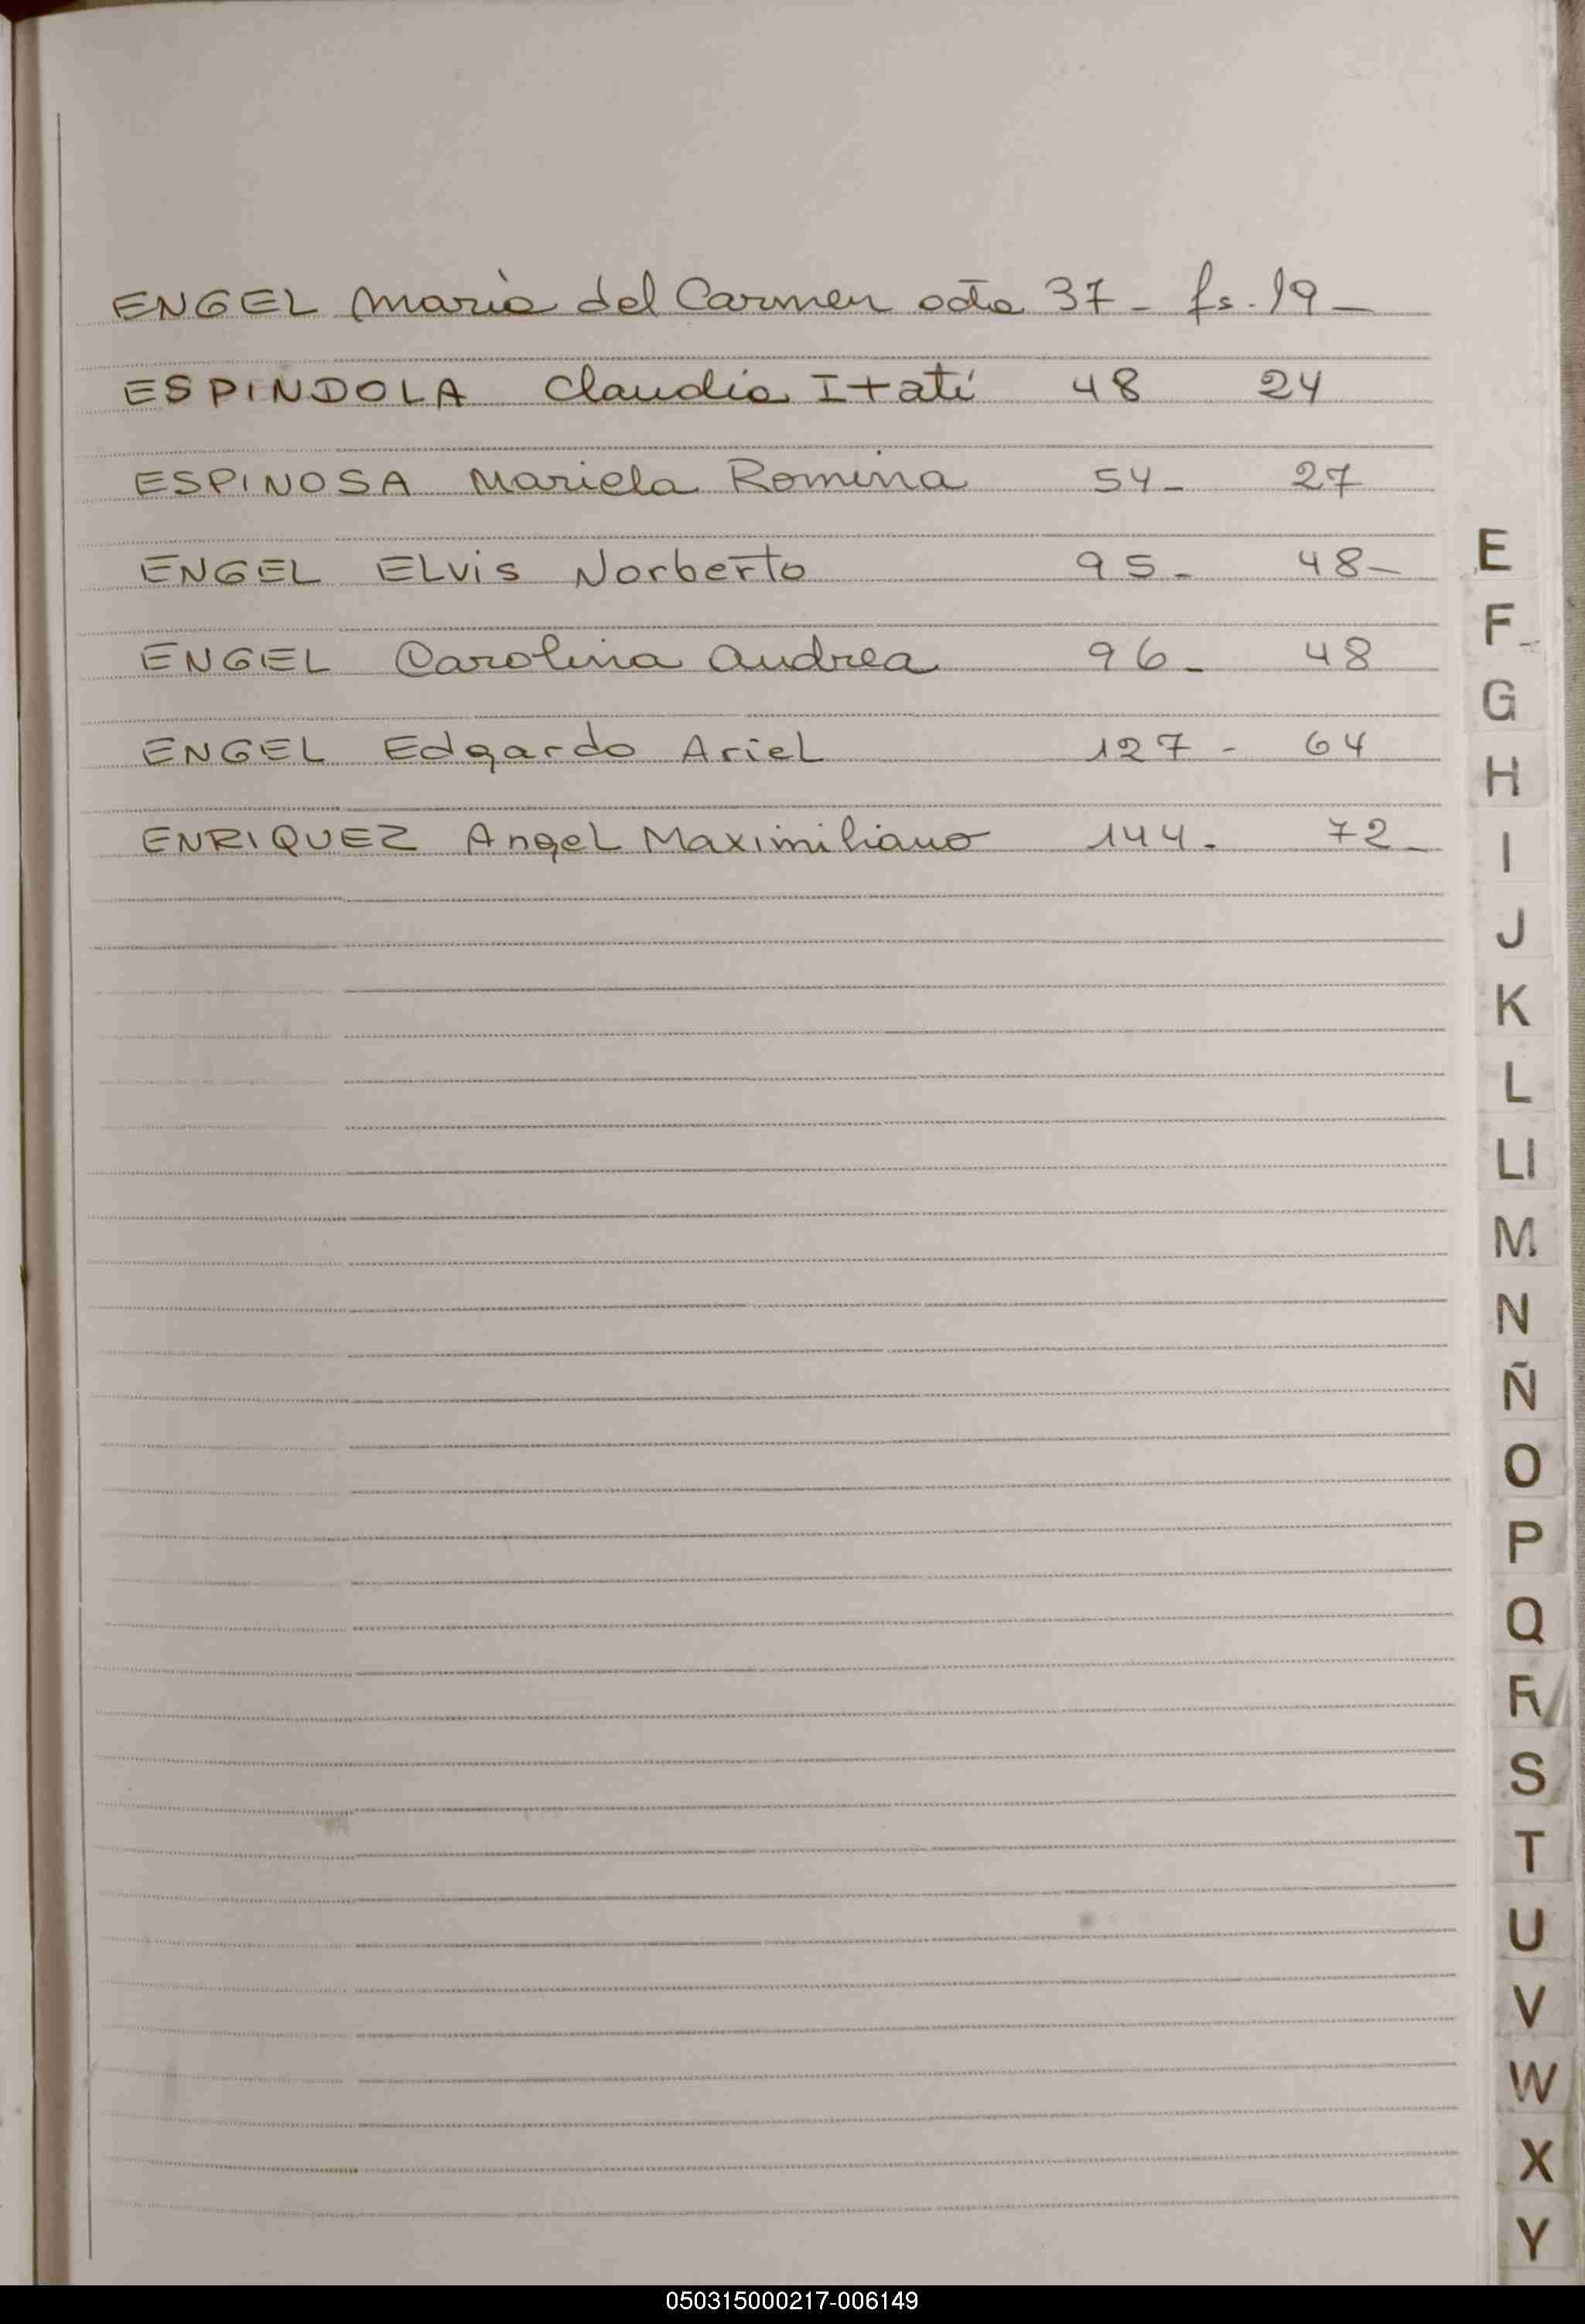 ENGEL María del Carmen acta 37 - fs. 19 -
ESPINDOLA Claudia Itatí 48 24
ESPINOSA Mariela Romina 54 - 27
ENGEL Elvis Norberto 95 - 48 -
ENGEL Carolina Andrea 96 - 48
ENGEL Edgardo Ariel 127 - 64
ENRIQUEZ Angel Maximiliano 144 - 72 -
E
F
G
H
I
J
K
L
Ll
M
N
Ñ
O
P
Q
R
S
T
U
V
W
X
Y
050315000217-006149